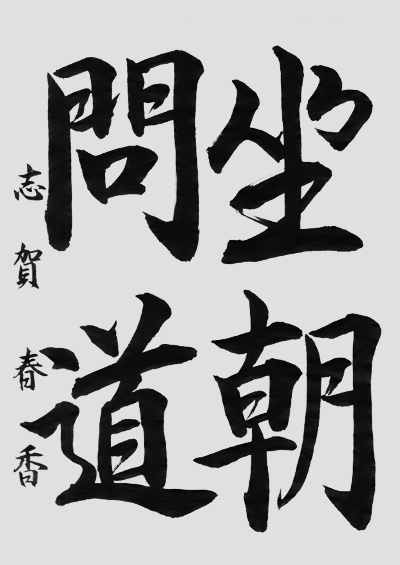 坐朝
問道
志賀春香